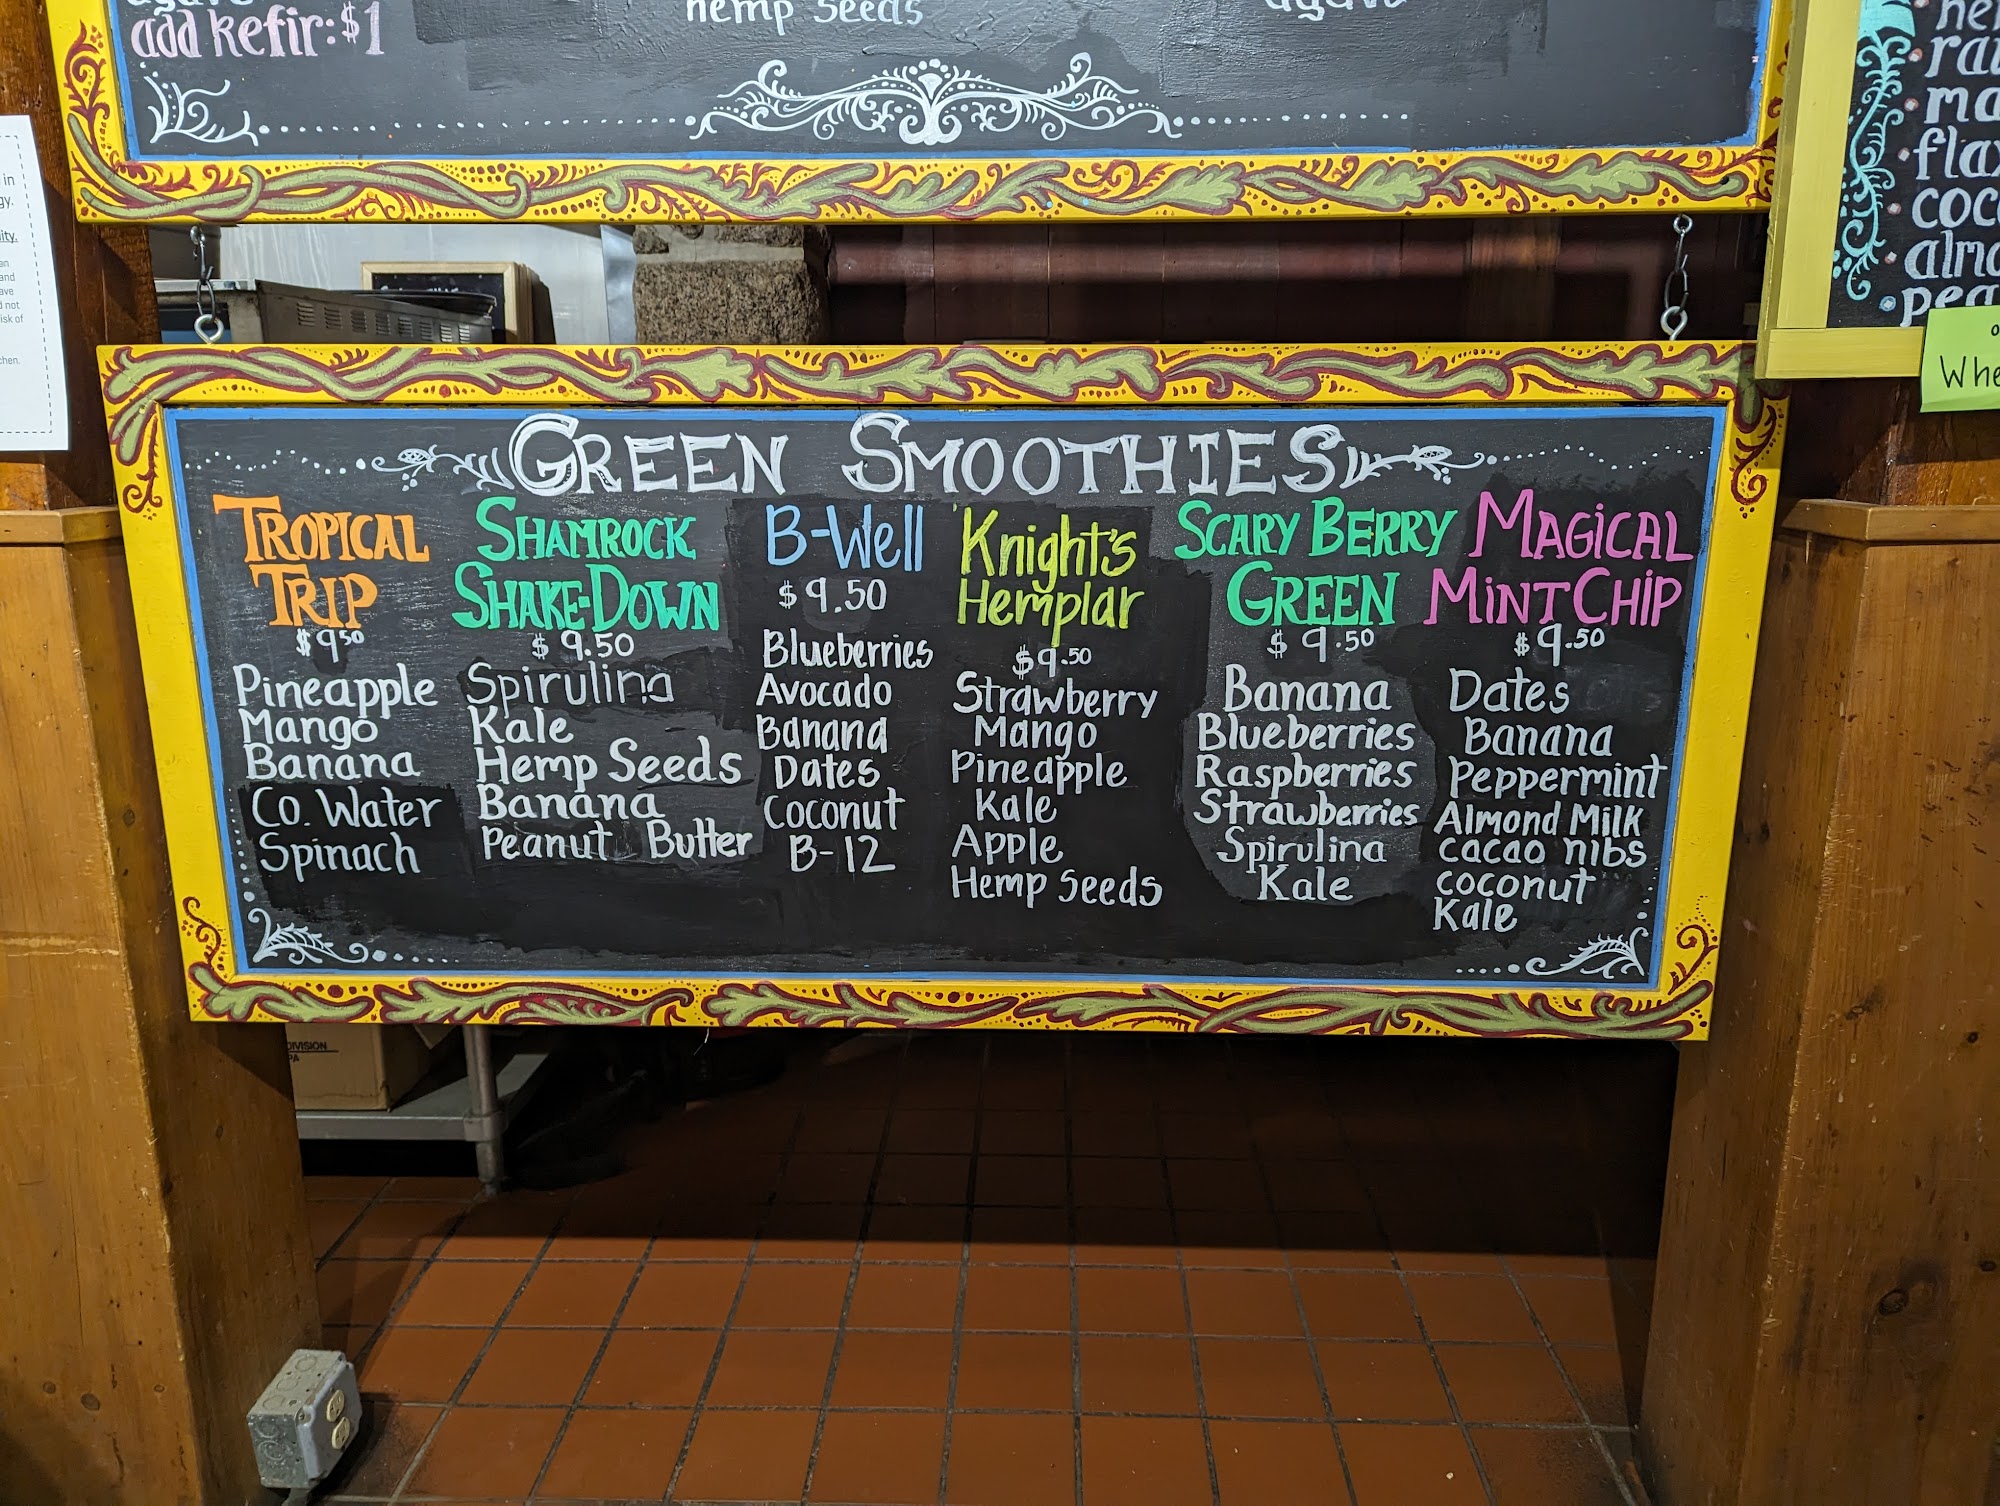 add kefir: $1
hemp seeds
agave
GREEN SMOOTHIES
TROPICAL
TRIP
$9.50
Pineapple
Mango
Banana
Co. Water
Spinach
SHAMROCK
SHAKE-DOWN
$9.50
Spirulina
Kale
Hemp Seeds
Banana
Peanut Butter
B-Well
$9.50
Blueberries
Avocado
Banana
Dates
Coconut
B-12
Knight's
Hemplar
$9.50
Strawberry
Mango
Pineapple
Kale
Apple
Hemp Seeds
SCARY BERRY
GREEN
$9.50
Banana
Blueberries
Raspberries
Strawberries
Spirulina
Kale
MAGiCAL
MiNT CHiP
$9.50
Dates
Banana
Peppermint
Almond Milk
cacao nibs
coconut
Kale
in
and
not
risk of
DIVISION